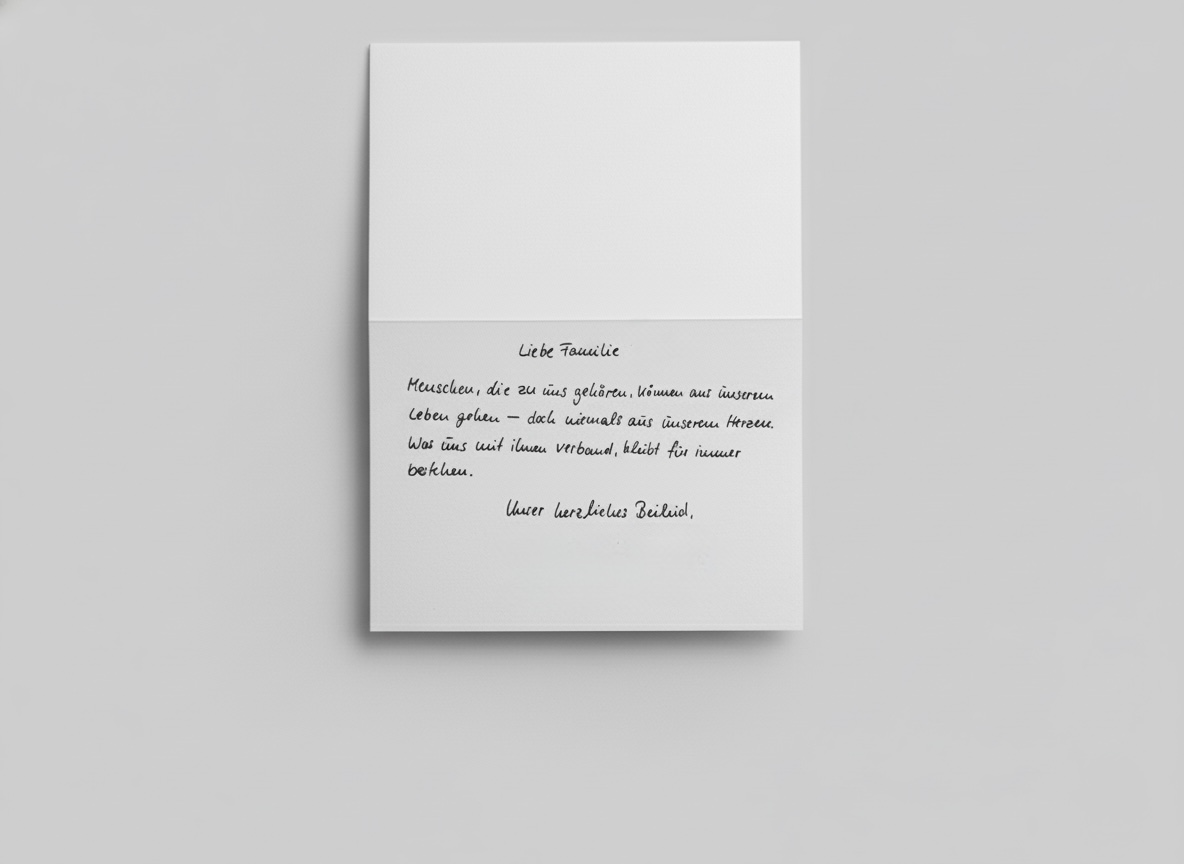 Liebe Familie
Menschen, die zu uns gehören, können aus unserem
Leben gehen – doch niemals aus unserem Herzen.
Was uns mit ihnen verband, bleibt für immer
bestehen.
Unser herzliches Beileid,